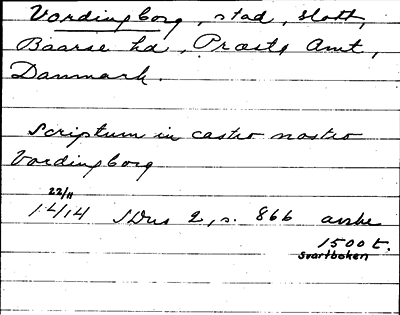 Vordingborg, stad, slott,
Baarse hd, Præstø Amt,
Danmark.
Scriptum in castro nostro
Vordingborg
22/11
1414 SDns 2, s. 866 avskr
1500 t.
Svartboken